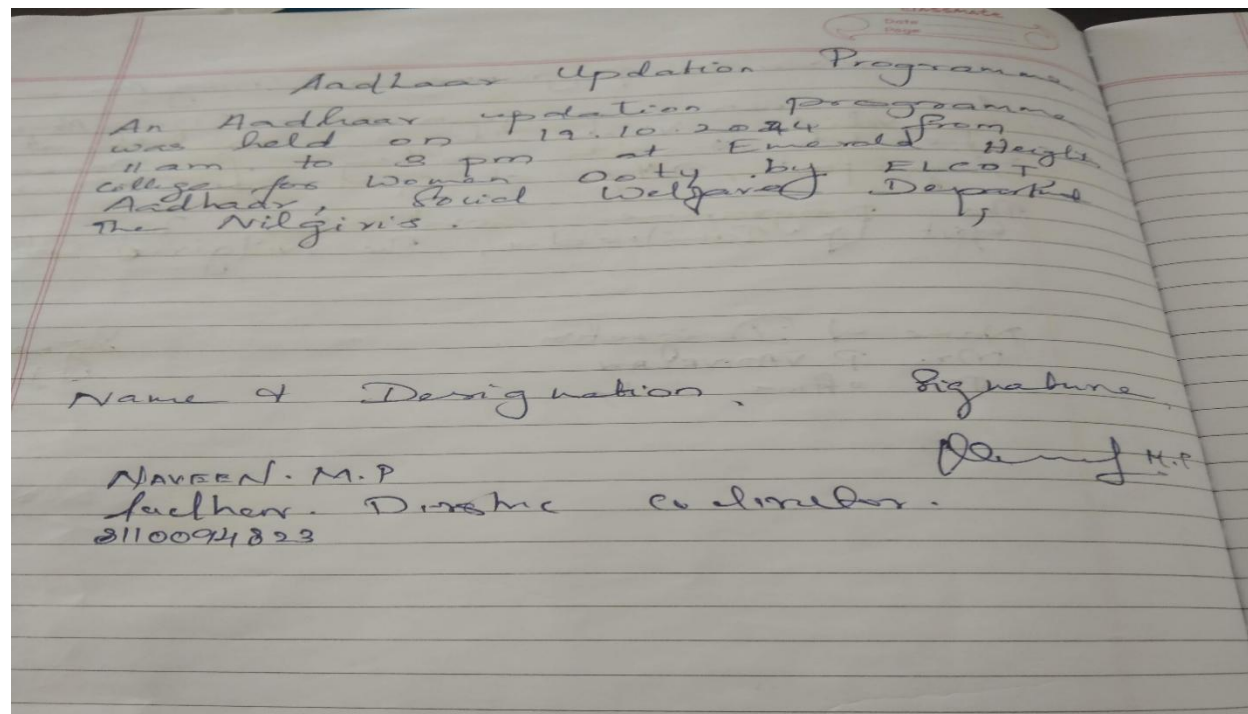 classmate
Date
Page
Aadhaar Updation Programme
An Aadhaar updation programme
was held on 19.10.2024 from
11 am to 2 pm at Emerald Heights
college for Women Ooty by ELCOT
Aadhaar, Social Welfare Department
The Nilgiris.
Name & Designation. Signature
NAVEEN. M.P M.P
Aadhaar. District Co ordinator.